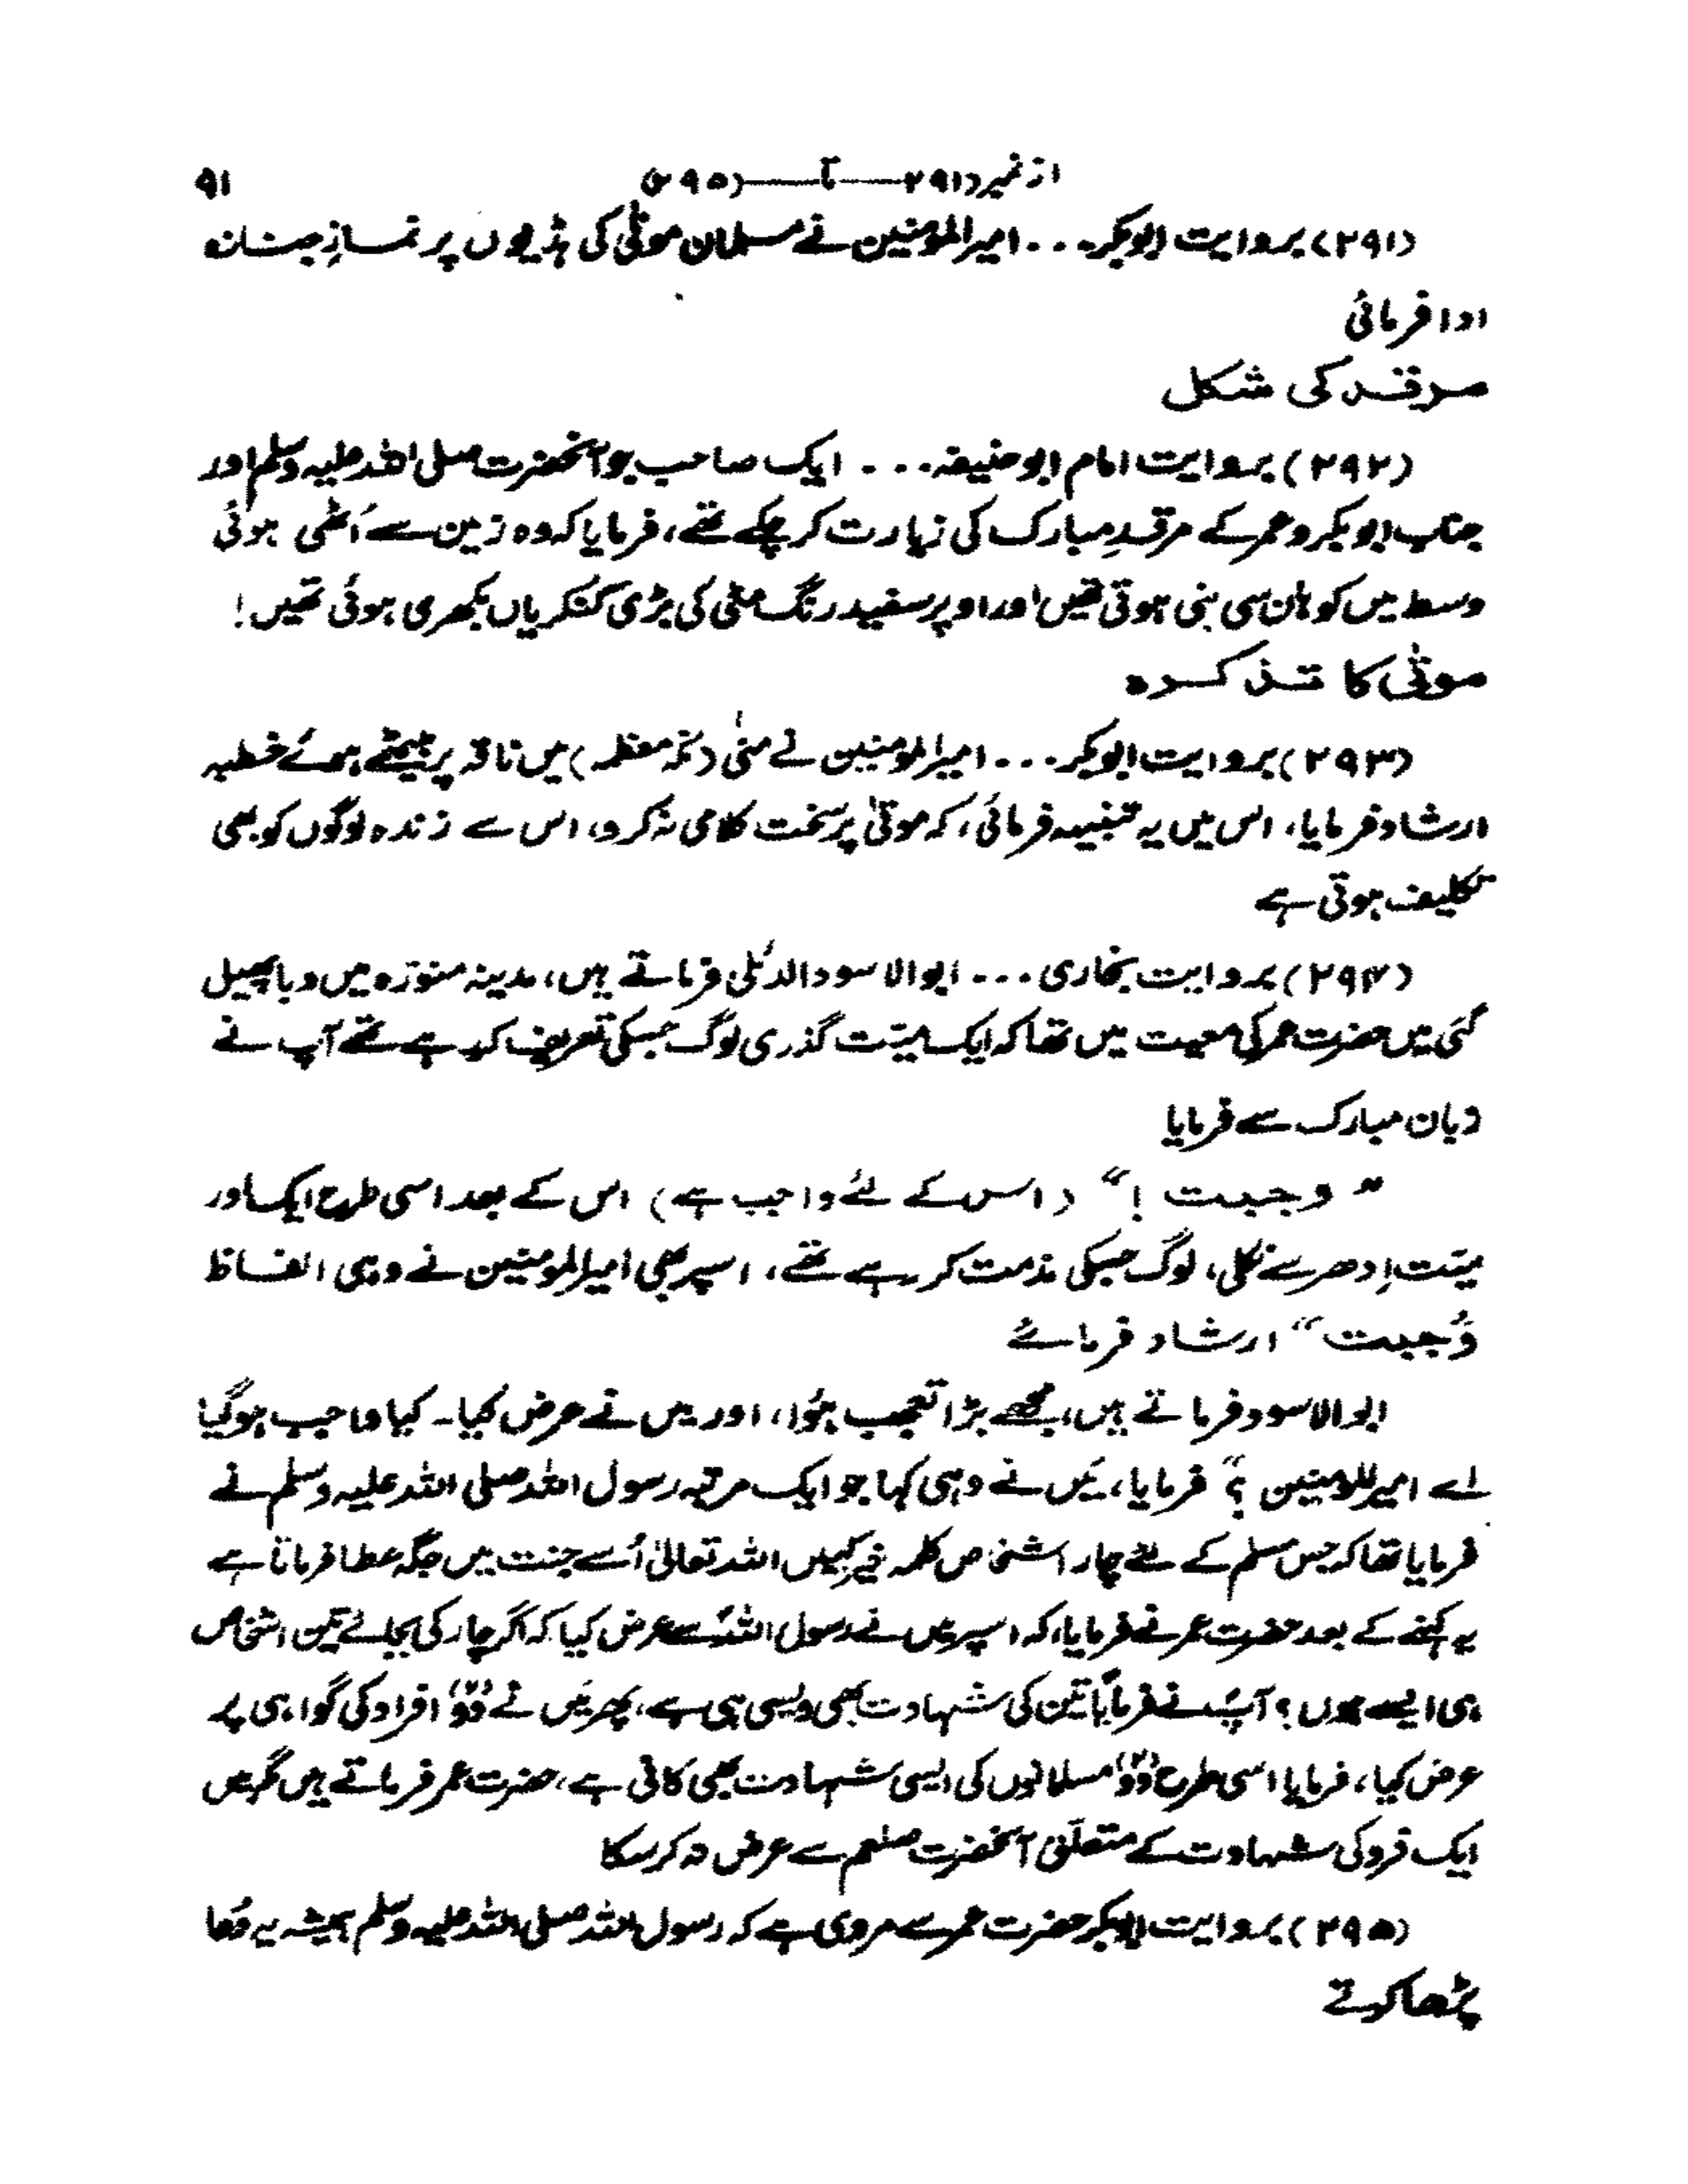 از نمبر (۲۹۱ ——— تا ——— (۲۹۵) ۹۱
(۲۹۱) بروایت ابوبکر... امیرالمومنین نے مسلمان موتٰی کی ہڈیوں پر نمازِ جنازہ
ادا فرمائی
مرقد کی شکل
(۲۹۲) بروایت امام ابوحنیفہ... ایک صاحب جو آنحضرت صلی اللہ علیہ وسلم اور
جناب ابوبکر و عمر کے مرقدِ مبارک کی زیارت کر چکے تھے، فرمایا کہ وہ زمین سے اُٹھی ہوئی
وسط میں کوہان سی بنی ہوتی تھیں اور اوپر سفید رنگ مٹی کی بڑی کنکریاں بکھری ہوئی تھیں!
موتٰی کا تذکرہ
(۲۹۳) بروایت ابوبکر... امیرالمومنین نے منٰی (مکہ معظمہ) میں ناقہ پر بیٹھے ہوئے خطبہ
ارشاد فرمایا، اس میں یہ تنبیہہ فرمائی، کہ موتٰی پر سخت کلامی نہ کرو، اس سے زندہ لوگوں کو بھی
تکلیف ہوتی ہے
(۲۹۴) بروایت بخاری... ابوالاسود الدئلی فرماتے ہیں، مدینہ منوّرہ میں وبا پھیل
گئی میں حضرت عمر کی معیت میں تھا کہ ایک میّت گذری لوگ جسکی تعریف کر رہے تھے آپ نے
زبان مبارک سے فرمایا
”وجبت!“ (اس کے لئے واجب ہے) اس کے بعد اسی طرح ایک اور
میّت اِدھر سے نکلی، لوگ جسکی مذمت کر رہے تھے، اسپر بھی امیرالمومنین نے وہی الفاظ
وُجبت“ ارشاد فرمائے
ابوالاسود فرماتے ہیں، مجھے بڑا تعجب ہؤا، اور میں نے عرض کیا۔ کیا واجب ہوگیا
اے امیرالمومنین؟“ فرمایا، میَں نے وہی کہا جو ایک مرتبہ رسول اللہ صلی اللہ علیہ وسلم نے
فرمایا تھا کہ جس مسلم کے لئے چار اشخاص کلمہ خیر کہیں اللہ تعالیٰ اُسے جنت میں جگہ عطا فرماتا ہے
یہ کہنے کے بعد حضرت عمر نے فرمایا، کہ اسپر میں نے رسول اللہؐ سے عرض کیا کہ اگر چار کی بجائے تین اشخاص
ہی ایسے ہوں؟ آپؐ نے فرمایا تین کی شہادت بھی ویسی ہی ہے، پھر میَں نے دوؔ افراد کی گواہی پر
عرض کیا، فرمایا اسی طرح دوؔ مسلمانوں کی ایسی شہادت بھی کافی ہے، حضرت عمر فرماتے ہیں مگر میں
ایک فرد کی شہادت کے متعلّق آنحضرت صلعم سے عرض نہ کر سکا
(۲۹۵) بروایت ابوبکر حضرت عمر سے مروی ہے کہ رسول اللہ صلی اللہ علیہ وسلم ہمیشہ یہ دُعا
پڑھا کرتے